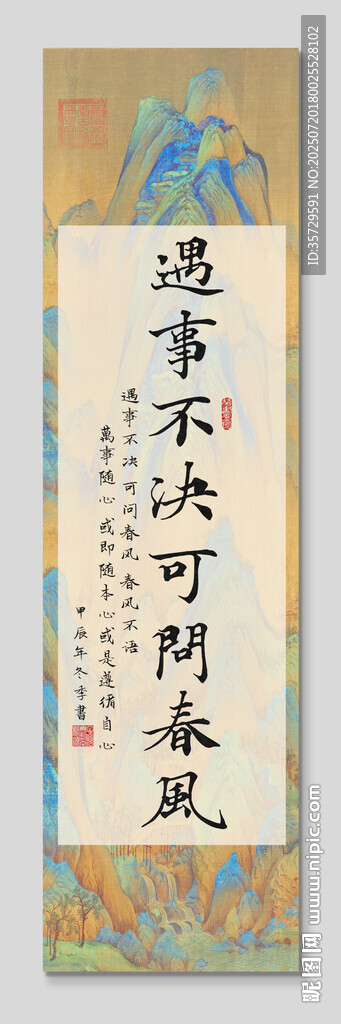 遇事不决可問春風
遇事不决可问春风春风不语
萬事随心或即随本心或是遵循自心
甲辰年冬季書
ID:35729591 NO:20250720180025528102
昵图网 www.nipic.com